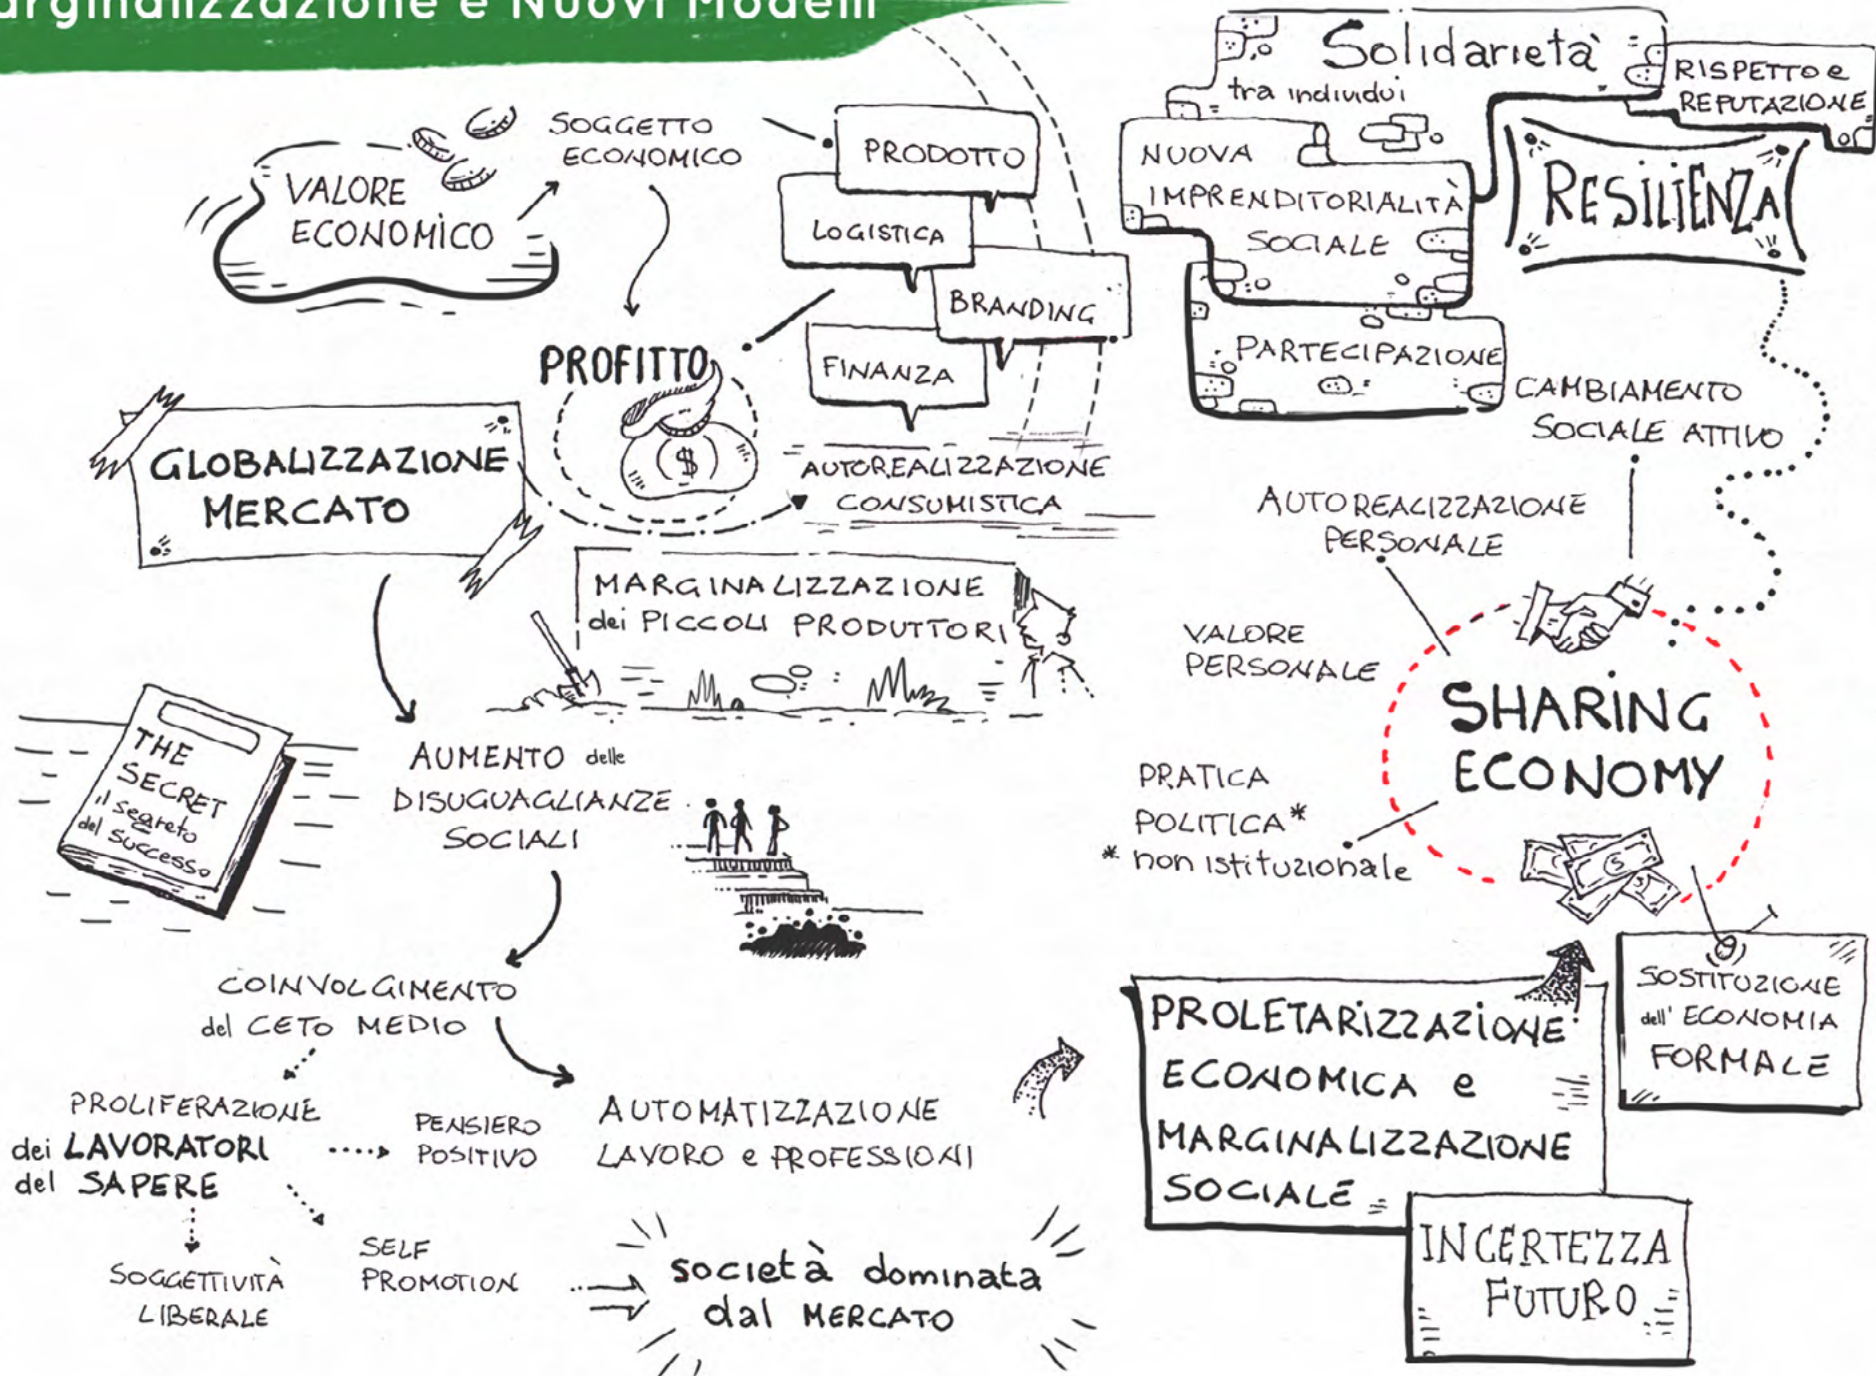 arginalizzazione e Nuovi Modelli
VALORE
ECONOMICO
SOGGETTO
ECONOMICO
PRODOTTO
LOGISTICA
BRANDING
FINANZA
PROFITTO
$
GLOBALIZZAZIONE
MERCATO
AUTOREALIZZAZIONE
CONSUMISTICA
MARGINALIZZAZIONE
dei PICCOLI PRODUTTORI
THE
SECRET
il segreto
del successo
AUMENTO delle
DISUGUAGLIANZE
SOCIALI
COINVOLGIMENTO
del CETO MEDIO
PROLIFERAZIONE
dei LAVORATORI
del SAPERE
PENSIERO
POSITIVO
AUTOMATIZZAZIONE
LAVORO e PROFESSIONI
SOGGETTIVITÀ
LIBERALE
SELF
PROMOTION
società dominata
dal MERCATO
Solidarietà
tra individui
RISPETTO e
REPUTAZIONE
NUOVA
IMPRENDITORIALITÀ
SOCIALE
RESILIENZA
PARTECIPAZIONE
CAMBIAMENTO
SOCIALE ATTIVO
AUTOREALIZZAZIONE
PERSONALE
VALORE
PERSONALE
SHARING
ECONOMY
PRATICA
POLITICA*
* non istituzionale
SOSTITUZIONE
dell' ECONOMIA
FORMALE
PROLETARIZZAZIONE
ECONOMICA e
MARGINALIZZAZIONE
SOCIALE
INCERTEZZA
FUTURO